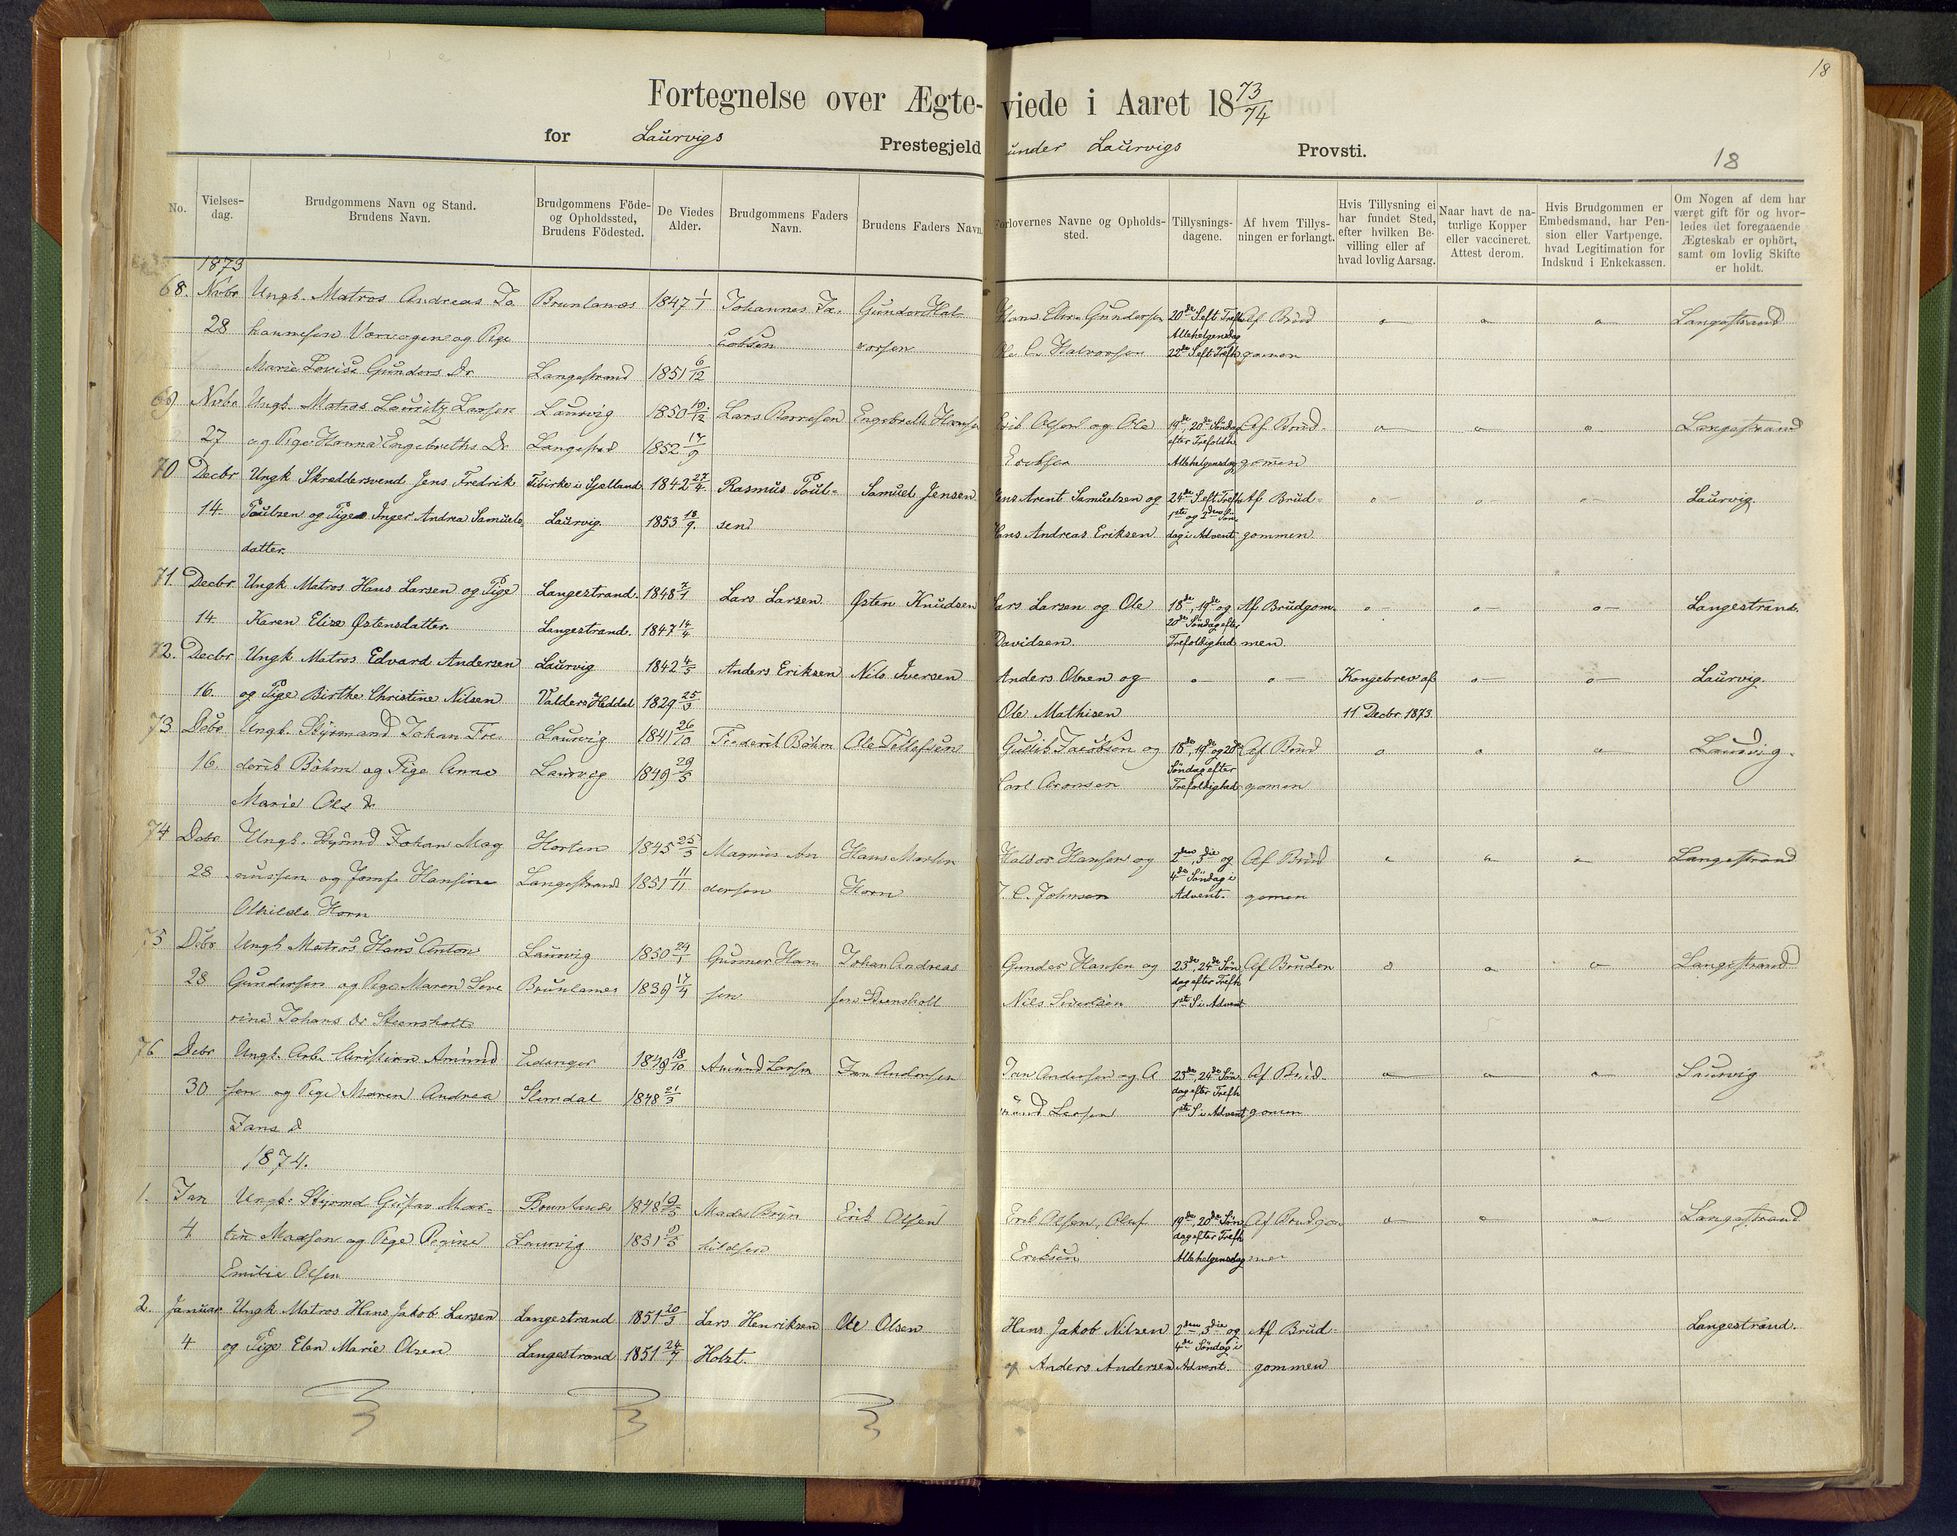 18
Fortegnelse over Ægteviede i Aaret 1873/74
for Laurvigs Prestegjeld under Laurvigs Provsti.
18
No.
Vielsesdag.
Brudgommens Navn og Stand. Brudens Navn.
Brudgommens Föde- og Opholdssted, Brudens Födested.
De Viedes Alder.
Brudgommens Faders Navn.
Brudens Faders Navn.
Forlovernes Navne og Opholdssted.
Tillysningsdagene.
Af hvem Tillysningen er forlangt.
Hvis Tillysning ei har fundet Sted, efter hvilken Bevilling eller af hvad lovlig Aarsag.
Naar havt de naturlige Kopper eller vaccineret. Attest derom.
Hvis Brudgommen er Embedsmand, har Pension eller Vartpenge, hvad Legitimation for Indskud i Enkekassen.
Om Nogen af dem har været gift för og hvorledes det foregaaende Ægteskab er ophört, samt om lovlig Skifte er holdt.
1873
68. Nvbr Ungk. Matros Andreas Jo Brunlanæs 1847 1/1 Johannes Ja- Gunder Hal- Hans Gundersen 20de S. eft Trefh Af Brud o o o Langestrand
28 hannesen og Pige cobsen vorsen Ole Halvorsen Allehelgensdag 22de S eft Trefh gomen
Marie Lovise Gunders Dr Langestrand 1851 6/12
69 Nvbr Ungk. Matros Lauritz Larsen Laurvig 1850 19/12 Lars Engebreth Erik Olsen og Ole 19de, 20de Søndag Af Brud- o o o Langestrand
27 og Pige Hanna Engebreths Dr Langestrd 1852 17/9 efter Trefoldh. Allehelgensdag gomen
70 Decbr Ungk Skræddersvend Jens Fredrik Tibirke i Sjælland 1842 27/4 Rasmus Poul- Samuel Jensen Jens Arent Samuelsen og 24de S. eft Trefh Af Brud- o o o Laurvig
14. Poulsen og Pige Inger Andrea Samuels- Laurvig. 1853 18/9. sen Hans Andreas Eriksen 1ste og 2den Søndag i Advent gommen
datter.
71. Decbr. Ungk Matros Hans Larsen og Pige Langestrand. 1848 7/1 Lars Larsen. Østen Knudsen Lars Larsen og Ole 18de, 19de og Af Brudgom- o o o Langestrand.
14. Karen Elise Østensdatter. Langestrand. 1847 14/4 Davidsen. 20de Søndag efter Trefoldighed men
72. Decbr Ungk Matros Edvard Andersen Laurvig 1842 4/5 Anders Eriksen Nils Iversen Anders Olsen og o o Kongebrev af o o Laurvig.
16. og Pige Birthe Christine Nilsen Valders Heddal 1829 25/3 Ole Mathisen 11 Decbr 1873.
73 Dcbr Ungk. Styrmand Johan Fre- Laurvig 1841 26/10 Frederik Böhm Ole Tellefsen Jacobsen og 18de, 19de og 20de Af Brud o o o Laurvig.
16. derik Böhm og Pige Anne Laurvig 1849 29/5 Carl Aronsen Søndag efter Trefoldighed gomen
Marie Ols dr
74 Dcbr Ungk. Styrmd Johan Mag Horten 1845 25/3 Magnus An Hans Martin Halvor Hansen og 2den, 3die og Af Brud o o o Langestrand
28 nussen og Jomf. Hansine Langestrand 1851 11/11 dersen Horn J. C. Johnsen 4de Søndag i Advent. gomen
Horn
75 Dcbr Ungk Matros Hans Anton Laurvig 1850 24/1 Gunner Han Johan Andreas Gunder Hansen og 23de, 24de Søn Af Bruden o o o Langestrand
28 Gundersen og Pige Maren Seve Brunlanes 1839 17/4 sen sen Steensholt Nils Sivertsen dag efter Trefh 1ste S. i Advent
rine Johans dr Steensholt
76 Dcbr Ungk. Arb. Christian Amund Eidanger 1849 18/10 Amund Larsen Jan Andersen Jan Andersen og A 23de, 24de Søn Af Brud- o o o Laurvig
30 sen og Pige Maren Andrea Slemdal 1848 21/3 mund Larsen dag efter Trefh 1ste S. i Advent gomen
Jans d
1874.
1. Jan Ungk. Styrmd Gustav Mar- Brunlanes 1848 19/5 Mads Bryn Erik Olsen Erik Olsen, Oluf 19de, 20de Søn Af Brudgo o o o Langestrand
4 tin Madsen og Pige Regine Laurvig 1851 9/5 hildsen Eriksen dag efter Trefh Allehelgensdag men
Emilie Olsen
2. Januar Ungk Matros Hans Jakob Larsen Langestrand 1851 20/3 Lars Henriksen Ole Olsen Hans Jakob Nilsen 2den, 3die og Af Brud- Langestrand.
4 og Pige Elen Marie Olsen Langestrand 1851 24/7 Holst. og Anders Andersen 4de Søndag i Advent. gommen